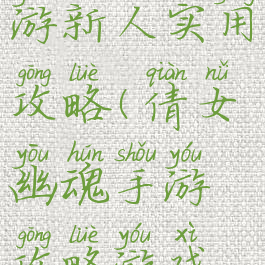 游新人实用
gōng lüè qiàn nǚ
攻略(倩女
yōu hún shǒu yóu
幽魂手游
gōng lüè yóu xì
攻略游戏